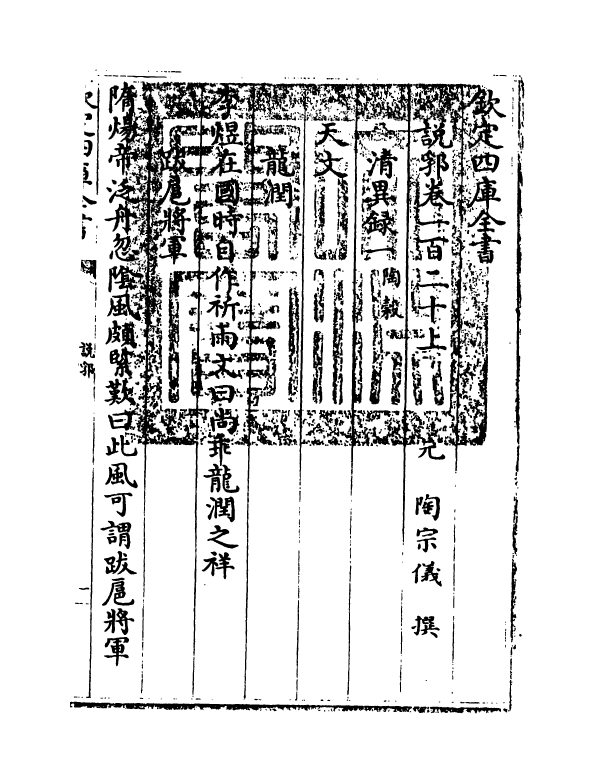 欽定四庫全書
說郛卷一百二十上 元 陶宗儀 撰
清異録一 陶穀
天文
龍潤
李煜在國時自作祈雨文曰尚乖龍潤之祥
跋扈將軍
隋煬帝泛舟忽隂風頗緊歎曰此風可謂跋扈將軍
欽定四庫全書
說郛